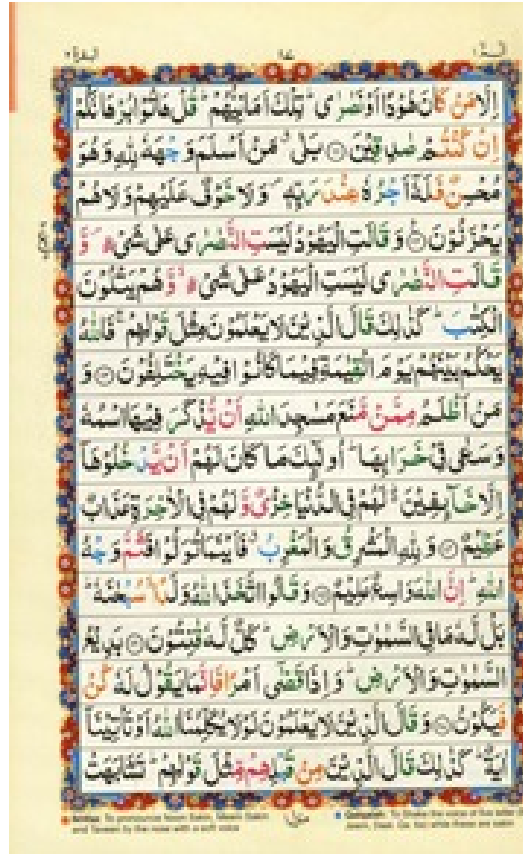 البقرة ٢
١٧
الٓمّٓ ١
اِلَّا مَنْ كَانَ هُوْدًا اَوْ نَصٰرٰى ؕ تِلْكَ اَمَانِيُّهُمْ ؕ قُلْ هَاتُوْا بُرْهَانَكُمْ
اِنْ كُنْتُمْ صٰدِقِيْنَ ۝ بَلٰى ۗ مَنْ اَسْلَمَ وَجْهَهٗ لِلّٰهِ وَهُوَ
مُحْسِنٌ فَلَهٗۤ اَجْرُهٗ عِنْدَ رَبِّهٖ ۪ وَلَا خَوْفٌ عَلَيْهِمْ وَلَا هُمْ
يَحْزَنُوْنَ ۝ وَقَالَتِ الْيَهُوْدُ لَيْسَتِ النَّصٰرٰى عَلٰى شَىْءٍ ۪ وَّ
قَالَتِ النَّصٰرٰى لَيْسَتِ الْيَهُوْدُ عَلٰى شَىْءٍ ۙ وَّهُمْ يَتْلُوْنَ
الْكِتٰبَ ؕ كَذٰلِكَ قَالَ الَّذِيْنَ لَا يَعْلَمُوْنَ مِثْلَ قَوْلِهِمْ ۚ فَاللّٰهُ
يَحْكُمُ بَيْنَهُمْ يَوْمَ الْقِيٰمَةِ فِيْمَا كَانُوْا فِيْهِ يَخْتَلِفُوْنَ ۝ وَ
مَنْ اَظْلَمُ مِمَّنْ مَّنَعَ مَسٰجِدَ اللّٰهِ اَنْ يُّذْكَرَ فِيْهَا اسْمُهٗ
وَسَعٰى فِىْ خَرَابِهَا ؕ اُولٰٓئِكَ مَا كَانَ لَهُمْ اَنْ يَّدْخُلُوْهَاۤ
اِلَّا خَآئِفِيْنَ ؕ لَهُمْ فِى الدُّنْيَا خِزْىٌ وَّلَهُمْ فِى الْاٰخِرَةِ عَذَابٌ
عَظِيْمٌ ۝ وَلِلّٰهِ الْمَشْرِقُ وَالْمَغْرِبُ ۗ فَاَيْنَمَا تُوَلُّوْا فَثَمَّ وَجْهُ
اللّٰهِ ؕ اِنَّ اللّٰهَ وَاسِعٌ عَلِيْمٌ ۝ وَقَالُوا اتَّخَذَ اللّٰهُ وَلَدًا ۙ سُبْحٰنَهٗ ؕ
بَلْ لَّهٗ مَا فِى السَّمٰوٰتِ وَالْاَرْضِ ؕ كُلٌّ لَّهٗ قٰنِتُوْنَ ۝ بَدِيْعُ
السَّمٰوٰتِ وَالْاَرْضِ ؕ وَاِذَا قَضٰۤى اَمْرًا فَاِنَّمَا يَقُوْلُ لَهٗ كُنْ
فَيَكُوْنُ ۝ وَقَالَ الَّذِيْنَ لَا يَعْلَمُوْنَ لَوْلَا يُكَلِّمُنَا اللّٰهُ اَوْ تَاْتِيْنَاۤ
اٰيَةٌ ؕ كَذٰلِكَ قَالَ الَّذِيْنَ مِنْ قَبْلِهِمْ مِّثْلَ قَوْلِهِمْ ؕ تَشَابَهَتْ
To pronounce Noon Sakin, Meem Sakin
and Tanween by the nose with a soft voice
منزل ١
Qalqalah: To Shake the voice of